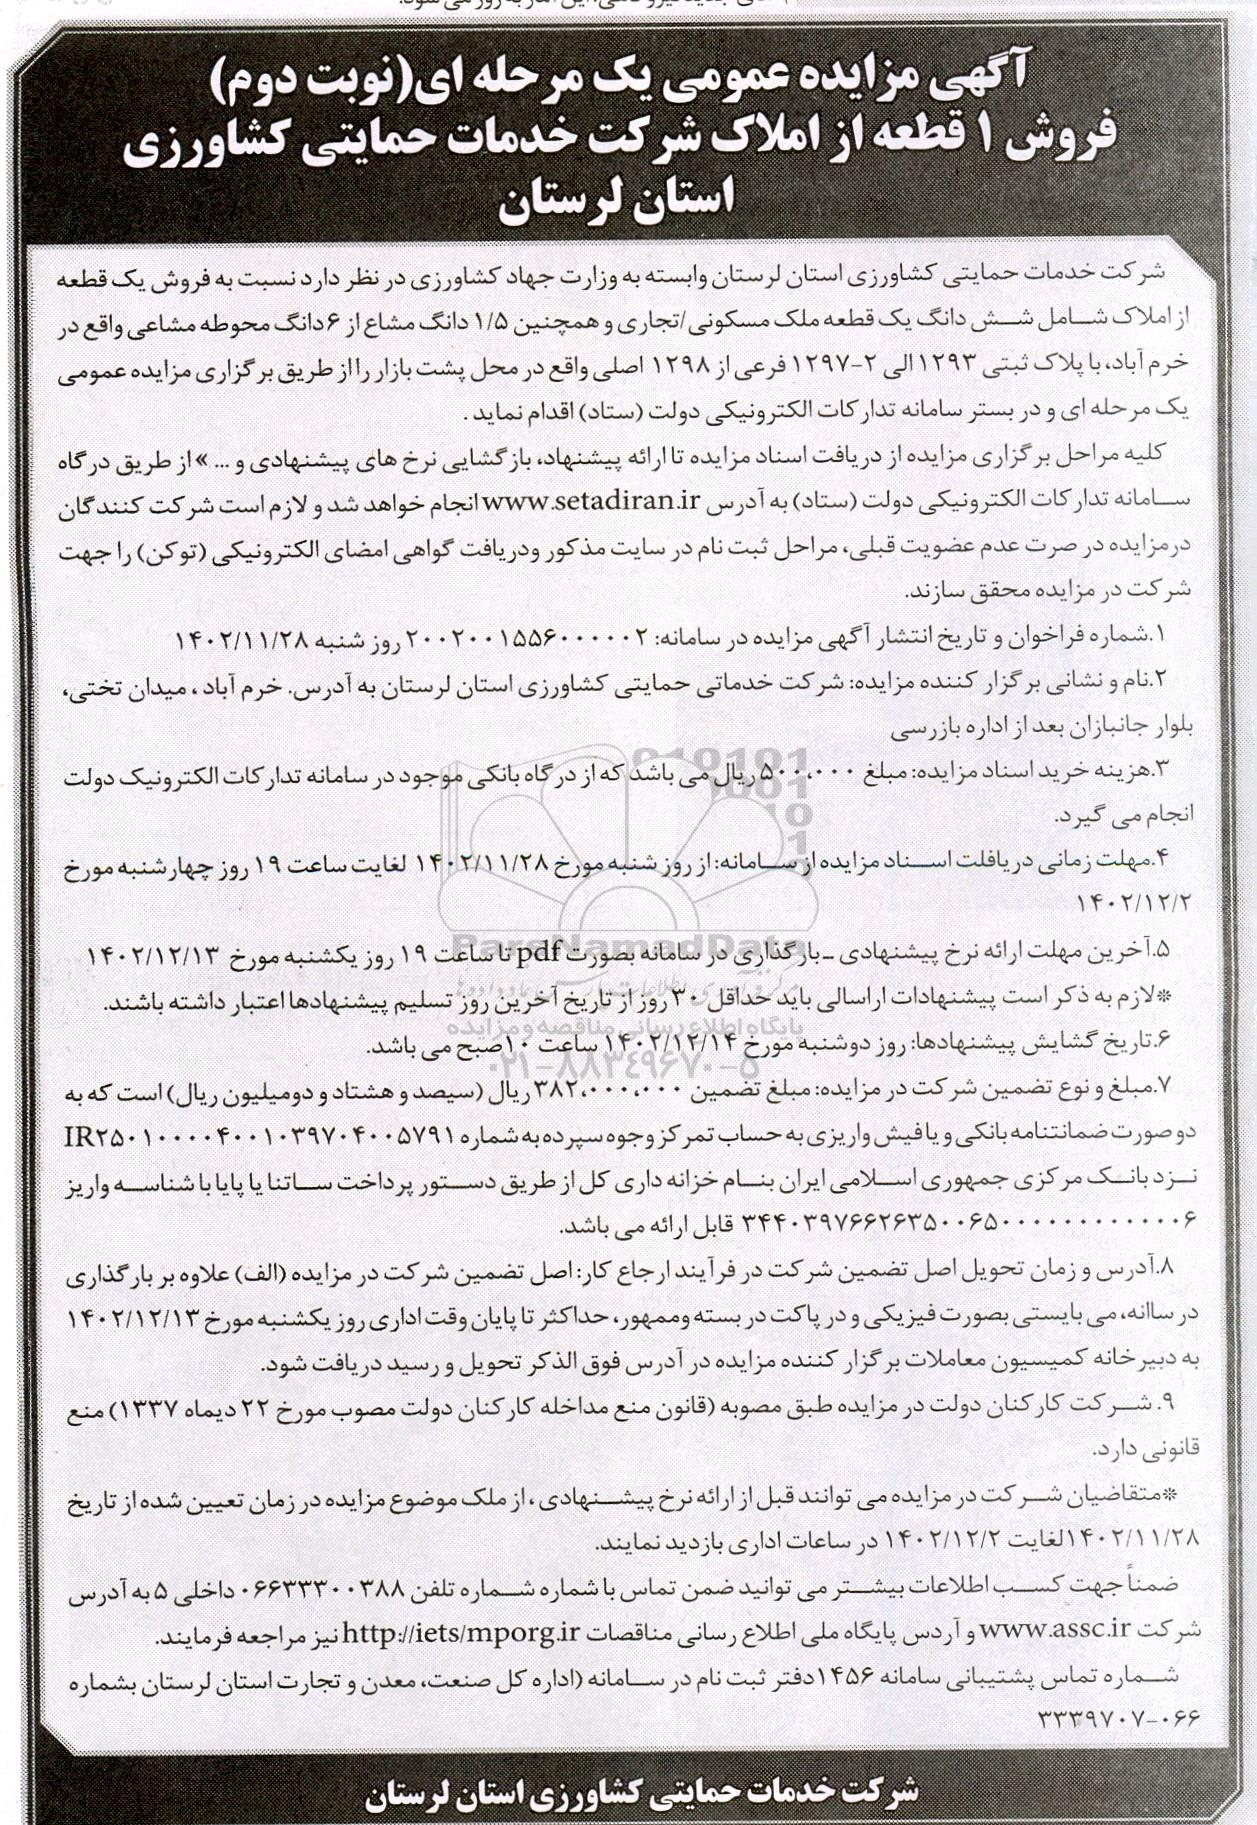 آگهی مزایده عمومی یک مرحله ای(نوبت دوم)
فروش ۱ قطعه از املاک شرکت خدمات حمایتی کشاورزی
استان لرستان
شرکت خدمات حمایتی کشاورزی استان لرستان وابسته به وزارت جهاد کشاورزی در نظر دارد نسبت به فروش یک قطعه
از املاک شامل شش دانگ یک قطعه ملک مسکونی/تجاری و همچنین ۱/۵ دانگ مشاع از ۶دانگ محوطه مشاعی واقع در
خرم آباد، با پلاک ثبتی ۱۲۹۳ الی ۲-۱۲۹۷ فرعی از ۱۲۹۸ اصلی واقع در محل پشت بازار را از طریق برگزاری مزایده عمومی
یک مرحله ای و در بستر سامانه تدارکات الکترونیکی دولت (ستاد) اقدام نماید .
کلیه مراحل برگزاری مزایده از دریافت اسناد مزایده تا ارائه پیشنهاد، بازگشایی نرخ های پیشنهادی و ... »از طریق درگاه
سامانه تدارکات الکترونیکی دولت (ستاد) به آدرس www.setadiran.ir انجام خواهد شد و لازم است شرکت کنندگان
درمزایده در صرت عدم عضویت قبلی، مراحل ثبت نام در سایت مذکور ودریافت گواهی امضای الکترونیکی (توکن) را جهت
شرکت در مزایده محقق سازند.
۱.شماره فراخوان و تاریخ انتشار آگهی مزایده در سامانه: ۲۰۰۲۰۰۱۵۵۶۰۰۰۰۰۲ روز شنبه ۱۴۰۲/۱۱/۲۸
۲.نام و نشانی برگزار کننده مزایده: شرکت خدماتی حمایتی کشاورزی استان لرستان به آدرس. خرم آباد ، میدان تختی،
بلوار جانبازان بعد از اداره بازرسی
۳.هزینه خرید اسناد مزایده: مبلغ ۵۰۰،۰۰۰ ریال می باشد که از درگاه بانکی موجود در سامانه تدارکات الکترونیک دولت
انجام می گیرد.
۴.مهلت زمانی دریافلت اسناد مزایده از سامانه: از روز شنبه مورخ ۱۴۰۲/۱۱/۲۸ لغایت ساعت ۱۹ روز چهارشنبه مورخ
۱۴۰۲/۱۲/۲
۵.آخرین مهلت ارائه نرخ پیشنهادی ـ بارگذاری در سامانه بصورت pdf تا ساعت ۱۹ روز یکشنبه مورخ ۱۴۰۲/۱۲/۱۳
*لازم به ذکر است پیشنهادات اراسالی باید حداقل ۳۰ روز از تاریخ آخرین روز تسلیم پیشنهادها اعتبار داشته باشند.
پایگاه اطلاع رسانی مناقصه و مزایده
۶.تاریخ گشایش پیشنهادها: روز دوشنبه مورخ ۱۴۰۲/۱۲/۱۴ ساعت ۱۰صبح می باشد.
۰۲۱-۸۸۳۴۹۶۷۰-۵
۷.مبلغ و نوع تضمین شرکت در مزایده: مبلغ تضمین ۳۸۲،۰۰۰،۰۰۰ ریال (سیصد و هشتاد و دومیلیون ریال) است که به
دو صورت ضمانتنامه بانکی و یا فیش واریزی به حساب تمرکز وجوه سپرده به شماره IR۲۵۰۱۰۰۰۰۴۰۰۱۰۳۹۷۰۴۰۰۵۷۹۱
نزد بانک مرکزی جمهوری اسلامی ایران بنام خزانه داری کل از طریق دستور پرداخت ساتنا یا پایا با شناسه واریز
۳۴۴۰۳۹۷۶۶۲۶۳۵۰۰۶۵۰۰۰۰۰۰۰۰۰۰۰۰۰۶ قابل ارائه می باشد.
۸.آدرس و زمان تحویل اصل تضمین شرکت در فرآیند ارجاع کار: اصل تضمین شرکت در مزایده (الف) علاوه بر بارگذاری
در ساانه، می بایستی بصورت فیزیکی و در پاکت در بسته وممهور، حداکثر تا پایان وقت اداری روز یکشنبه مورخ ۱۴۰۲/۱۲/۱۳
به دبیرخانه کمیسیون معاملات برگزار کننده مزایده در آدرس فوق الذکر تحویل و رسید دریافت شود.
۹. شرکت کارکنان دولت در مزایده طبق مصوبه (قانون منع مداخله کارکنان دولت مصوب مورخ ۲۲ دیماه ۱۳۳۷) منع
قانونی دارد.
*متقاضیان شرکت در مزایده می توانند قبل از ارائه نرخ پیشنهادی ، از ملک موضوع مزایده در زمان تعیین شده از تاریخ
۱۴۰۲/۱۱/۲۸لغایت ۱۴۰۲/۱۲/۲ در ساعات اداری بازدید نمایند.
ضمناً جهت کسب اطلاعات بیشتر می توانید ضمن تماس با شماره شماره تلفن ۰۶۶۳۳۳۰۰۳۸۸ داخلی ۵ به آدرس
شرکت www.assc.ir و آردس پایگاه ملی اطلاع رسانی مناقصات http://iets/mporg.ir نیز مراجعه فرمایند.
شماره تماس پشتیبانی سامانه ۱۴۵۶دفتر ثبت نام در سامانه (اداره کل صنعت، معدن و تجارت استان لرستان بشماره
۰۶۶-۳۳۳۹۷۰۷
شرکت خدمات حمایتی کشاورزی استان لرستان